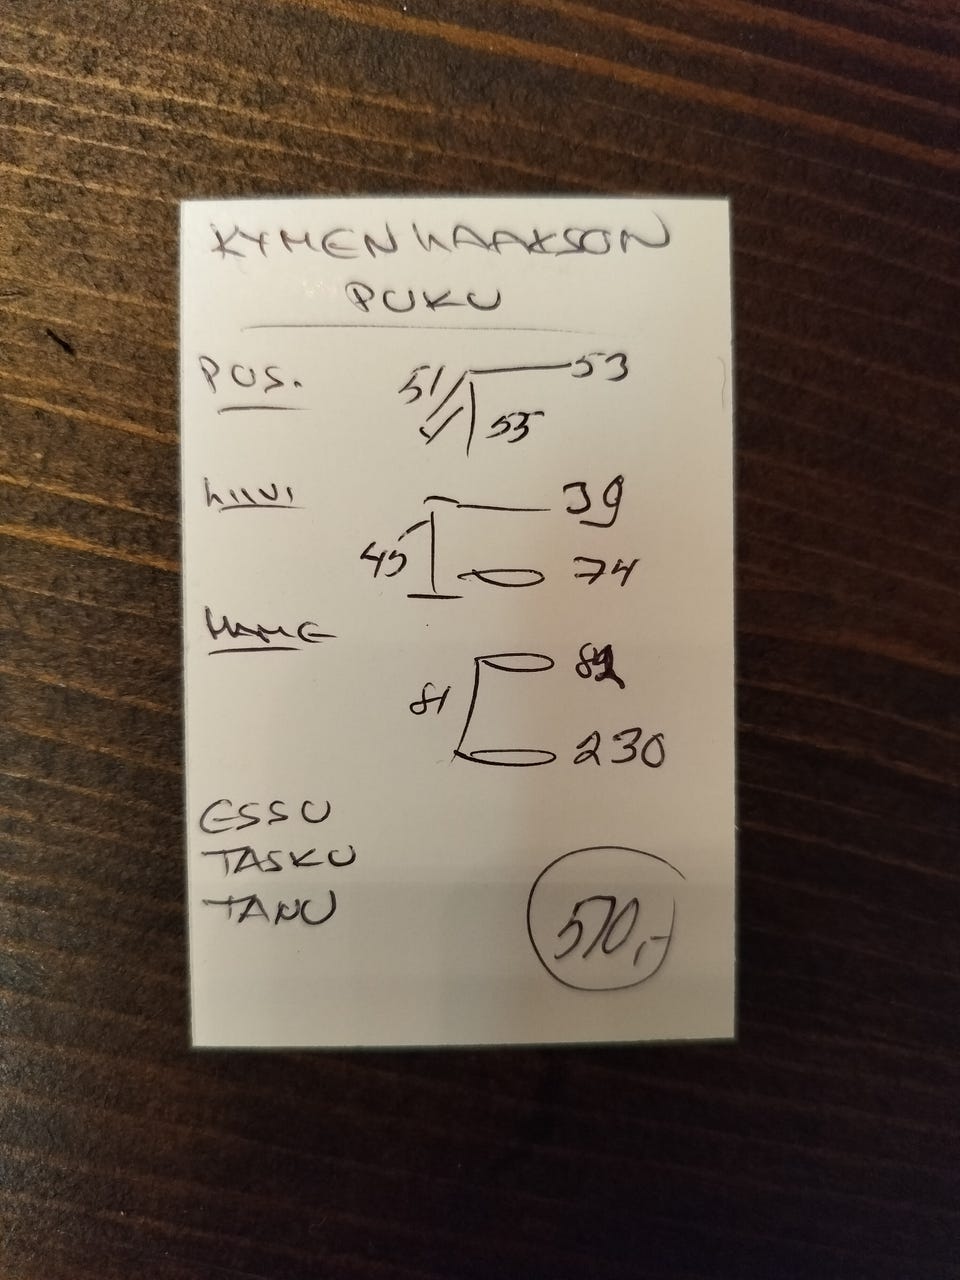 KYMENLAAKSON
PUKU
PUS.
51 53
55
LIIVI
39
45 74
HAME
81
230
ESSU
TASKU
TANU
570,-